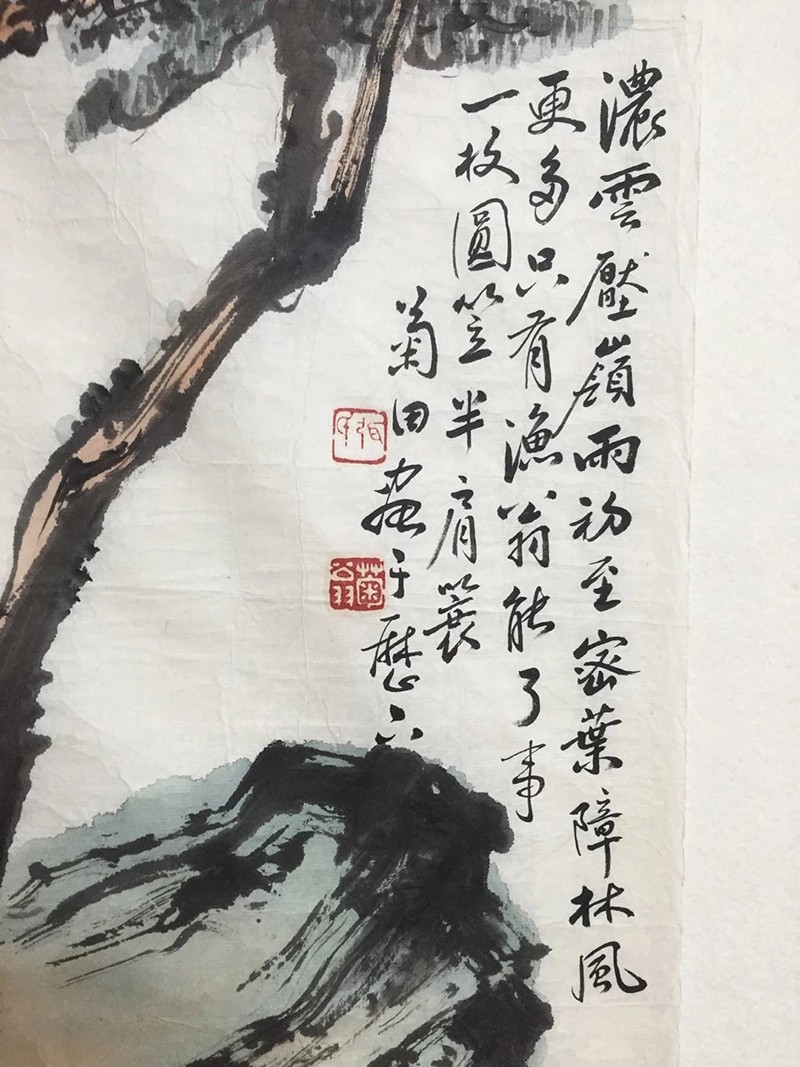 濃雲壓嶺雨初至密葉障林風
更多只有漁翁能了事
一枚圓笠半肩蓑
菊田畫于歷下
菊翁